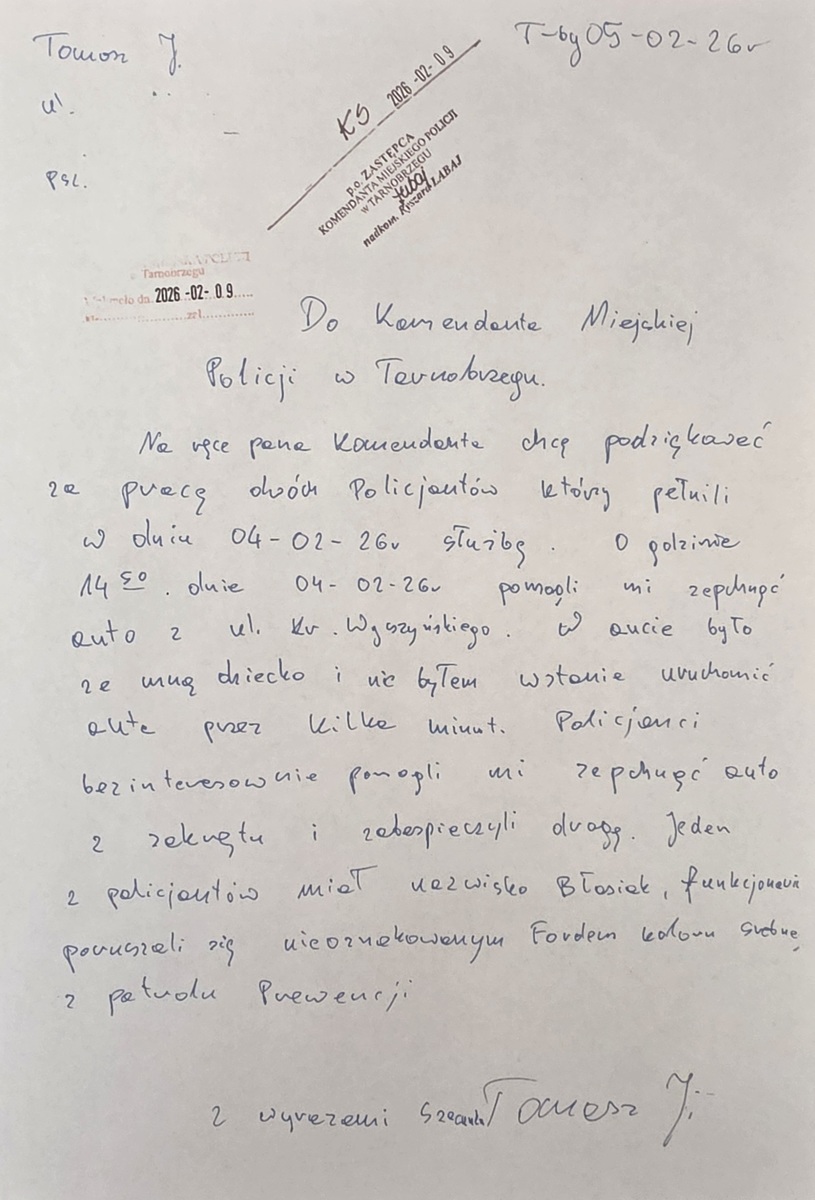 Tomasz J.
T-bg 05-02-26r
ul.
KS 2026 -02- 09
psc.
p.o. ZASTĘPCA
KOMENDANTA MIEJSKIEGO POLICJI
w TARNOBRZEGU
nadkom. Ryszard ŁABAJ
Tarnobrzegu
da. 2026 -02- 09
zał.
Do Komendanta Miejskiej
Policji w Tarnobrzegu.
Na ręce pana Komendanta chcę podziękować
za pracę dwóch Policjantów którzy pełnili
w dniu 04-02-26r służbę. O godzinie
14 50. dnia 04-02-26r pomogli mi zepchnąć
auto z ul. Kr. Wyszyńskiego. W aucie było
ze mną dziecko i nie byłem wstanie uruchomić
auta przez kilka minut. Policjanci
bezinteresownie pomogli mi zepchnąć auto
z zakrętu i zabespieczyli drogę. Jeden
z policjantów miał nazwisko Błasiak, funkcjonariu
poruszali się nieoznakowanym Fordem koloru srebne,
z patrolu Prewencji
z wyrazami Tomasz J.